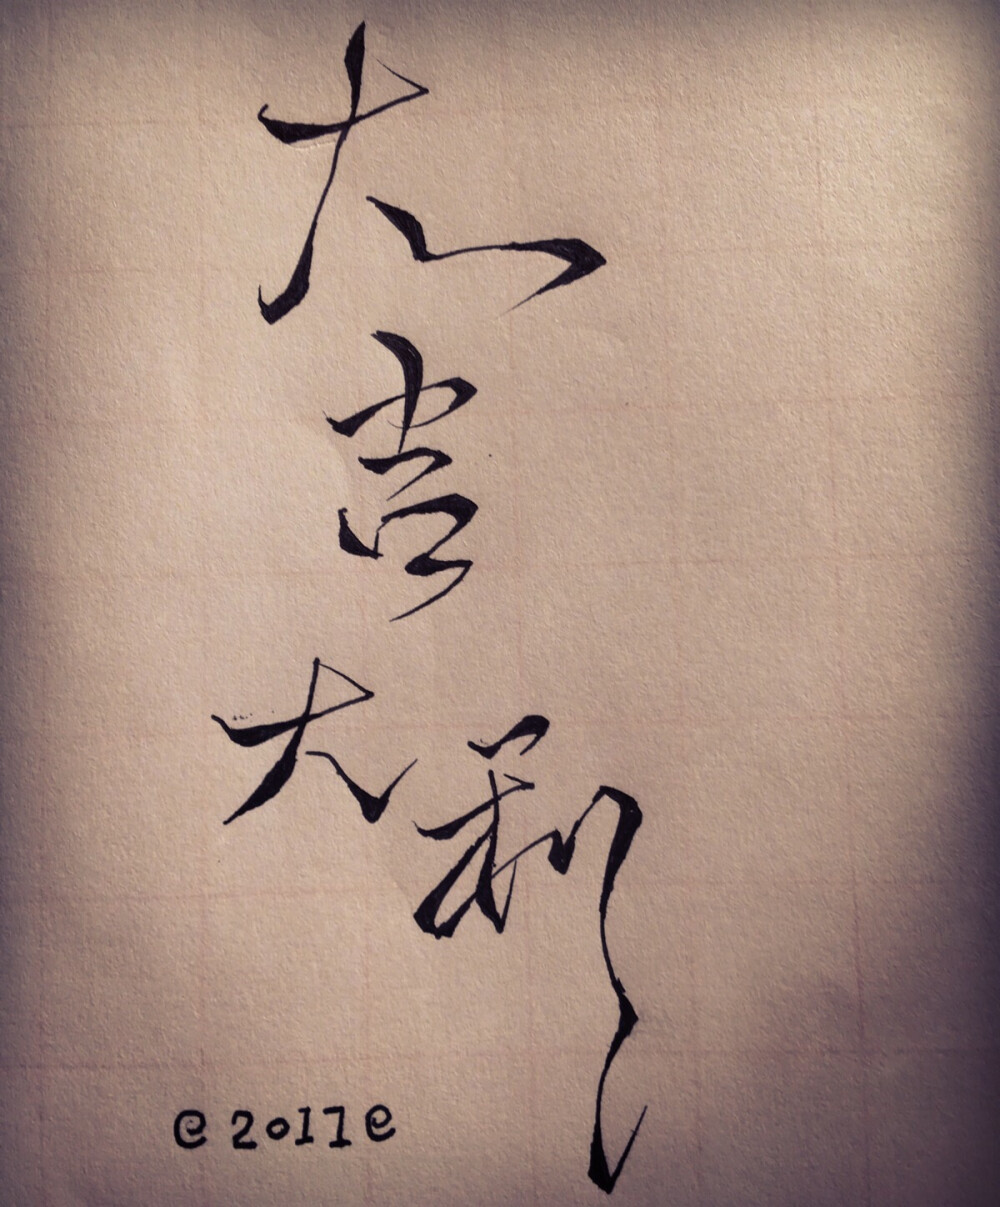 大吉大利
@2017@